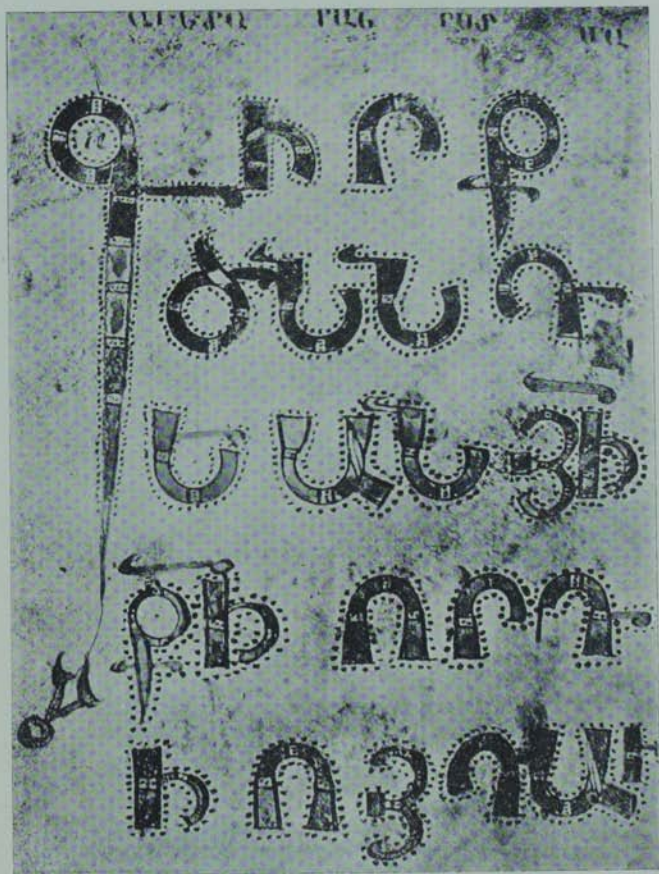 ԳԻՐՔ
ԾՆՆԴ
ԵԱՆ ՅԻ
ՔԻ ՈՐԴ
Ի ՈՅ ԴԱՒ